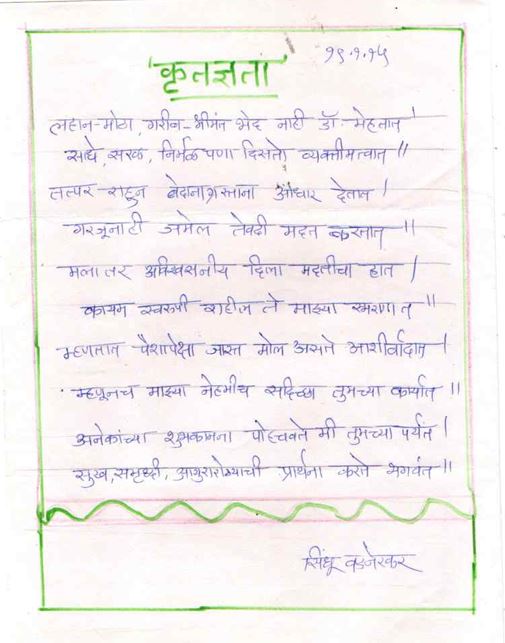 १९.१.१५
'कृतज्ञता'
लहान-मोठा, गरीब-श्रीमंत भेद नाही डॉ. मेहतात।
साधे, सरळ, निर्मळपणा दिसतो व्यक्तीमत्वात॥
तत्पर राहून वेदनाग्रस्ताना आधार देतात।
गरजूनाही जमेल तेवढी मदत करतात॥
मला तर अविश्वसनीय दिला मदतीचा हात।
कायम स्वरुपी राहील ते माझ्या स्मरणात॥
म्हणतात पैशापेक्षा जास्त मोल असते आशीर्वादात।
म्हणूनच माझ्या नेहमीच सदिच्छा तुमच्या कार्यात॥
अनेकांच्या शुभकामना पोहचवते मी तुमच्या पर्यंत।
सुख, समृध्दी, आयुरारोग्याची प्रार्थना करते भगवंत॥
सिंधू वडनेरकर